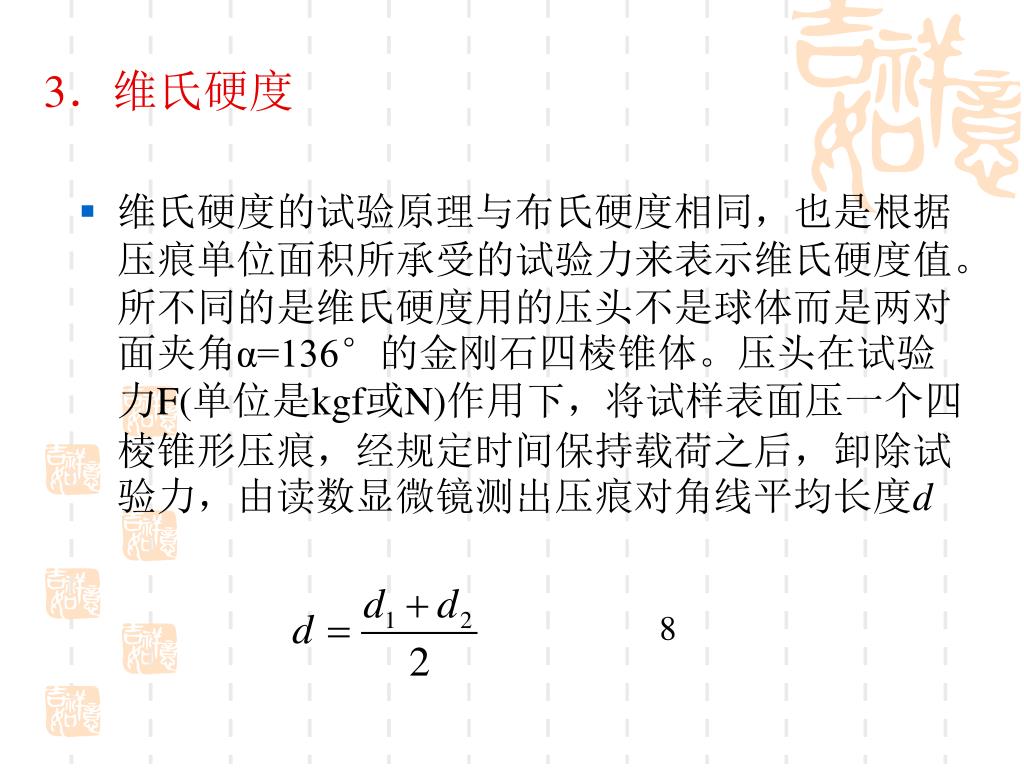 吉祥如意
3．维氏硬度
维氏硬度的试验原理与布氏硬度相同，也是根据
压痕单位面积所承受的试验力来表示维氏硬度值。
所不同的是维氏硬度用的压头不是球体而是两对
面夹角α=136°的金刚石四棱锥体。压头在试验
力F(单位是kgf或N)作用下，将试样表面压一个四
棱锥形压痕，经规定时间保持载荷之后，卸除试
验力，由读数显微镜测出压痕对角线平均长度d
吉祥如意
吉祥如意
吉祥如意
吉祥如意
吉祥如意
吉祥如意
d = (d₁ + d₂) / 2
8